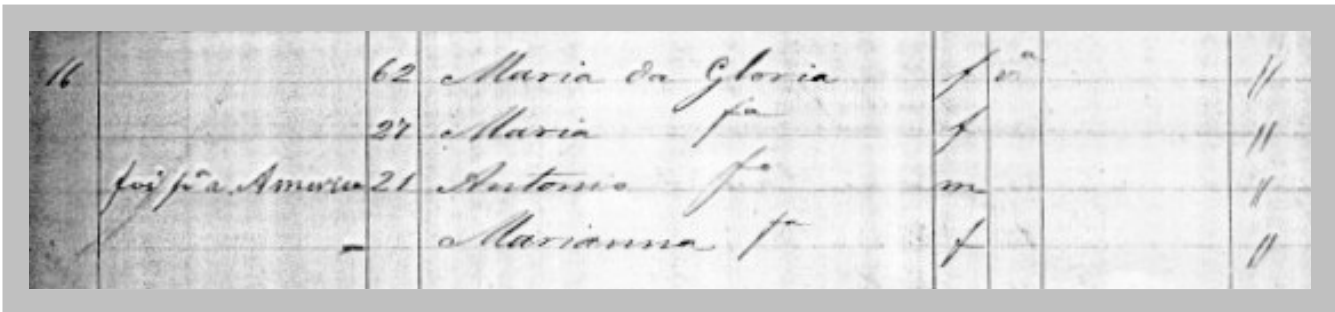 16 62 Maria da Gloria f vª "
27 Maria fª f "
foi pª a America 21 Antonio fº m "
- Marianna fª f "